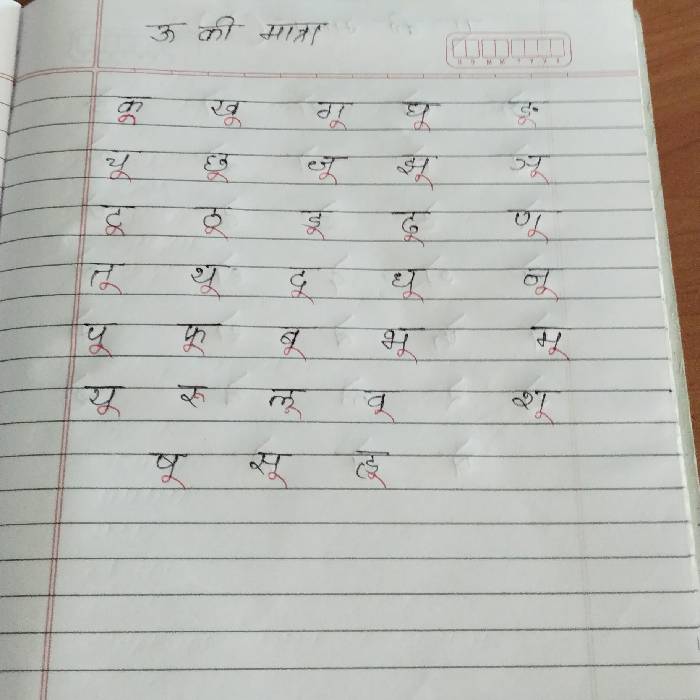 ऊ की मात्रा
कू खू गू घू ङू
चू छू जू झू ञू
टू ठू डू ढू णू
तू थू दू धू नू
पू फू बू भू मू
यू रू लू वू शू
षू सू हू